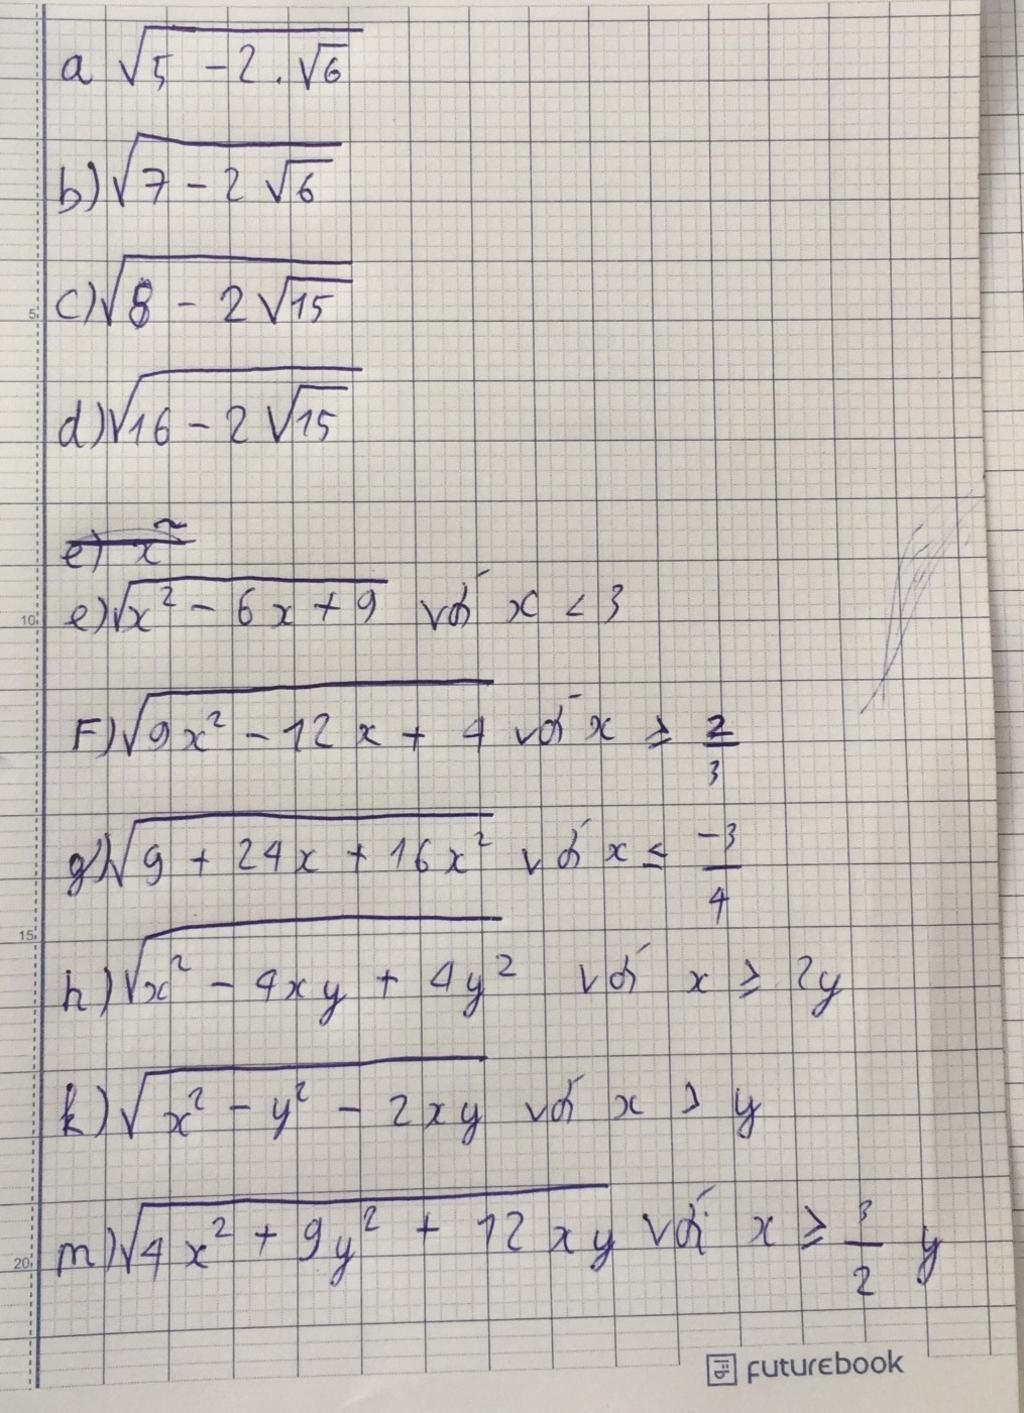 a √(5 - 2.√6)
b) √(7 - 2√6)
c) √(8 - 2√15)
5
d) √(16 - 2√15)
e) x²
e) √(x² - 6x + 9) với x < 3
10
F) √(9x² - 12x + 4) với x ≥ 2/3
g) √(9 + 24x + 16x²) với x ≤ -3/4
15
h) √(x² - 4xy + 4y²) với x ≥ 2y
k) √(x² - y² - 2xy) với x > y
m) √(4x² + 9y² + 12xy) với x ≥ 3/2 y
20
futurebook